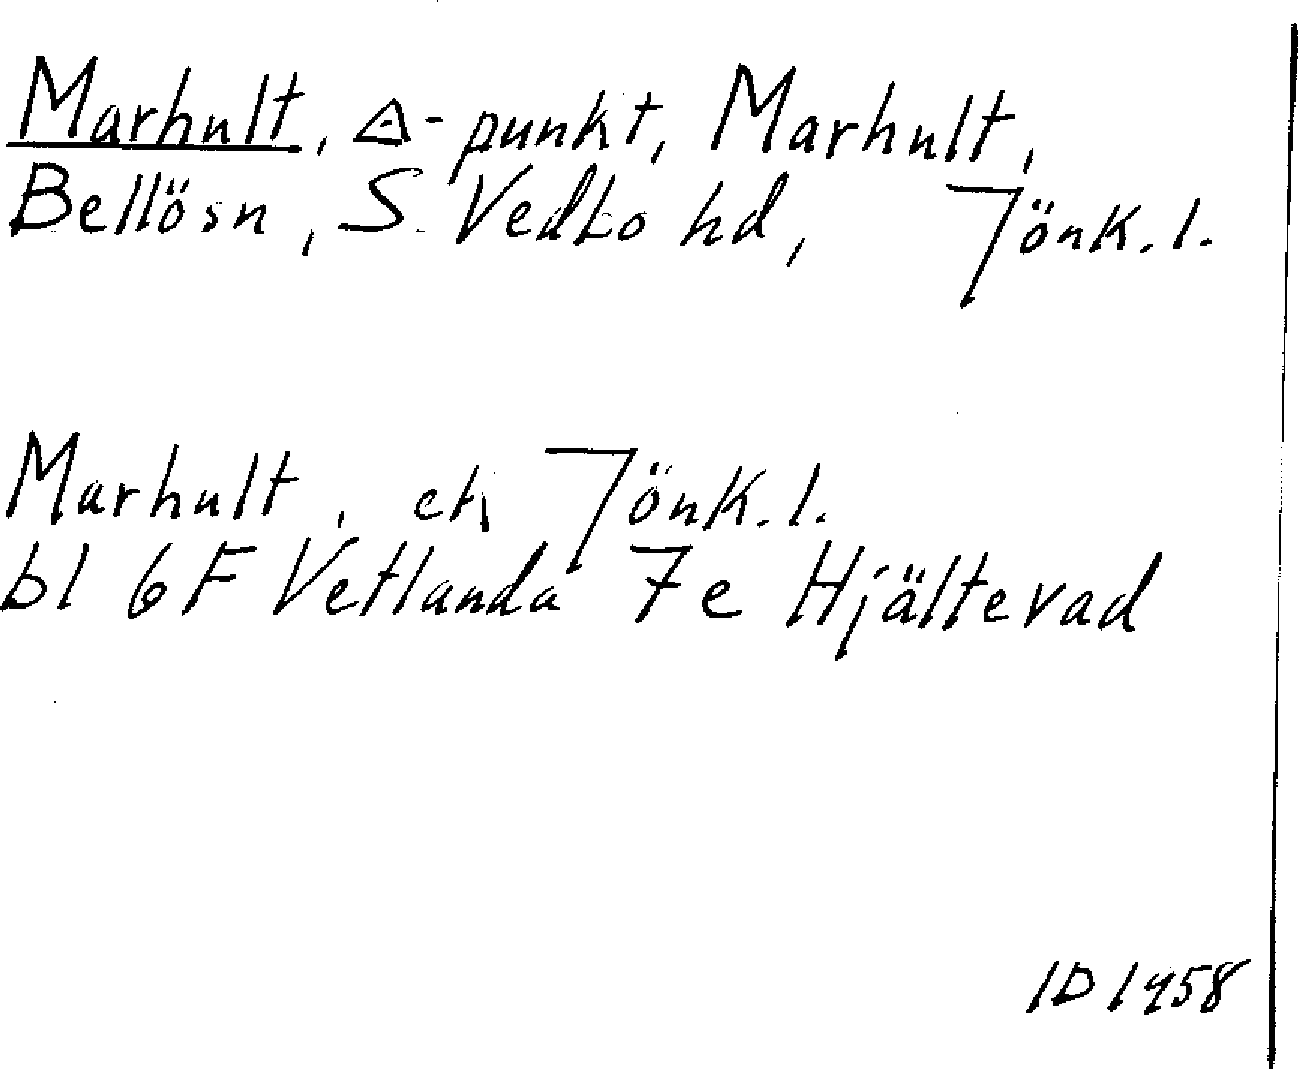 Marhult, △-punkt, Marhult,
Bellösn, S. Vedbo hd, Jönk. l.
Marhult, ek, Jönk. l.
bl 6F Vetlanda 7e Hjältevad
ID 1958